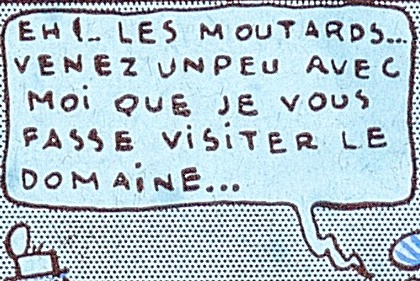 EH!.. LES MOUTARDS...
VENEZ UN PEU AVEC
MOI QUE JE VOUS
FASSE VISITER LE
DOMAINE...